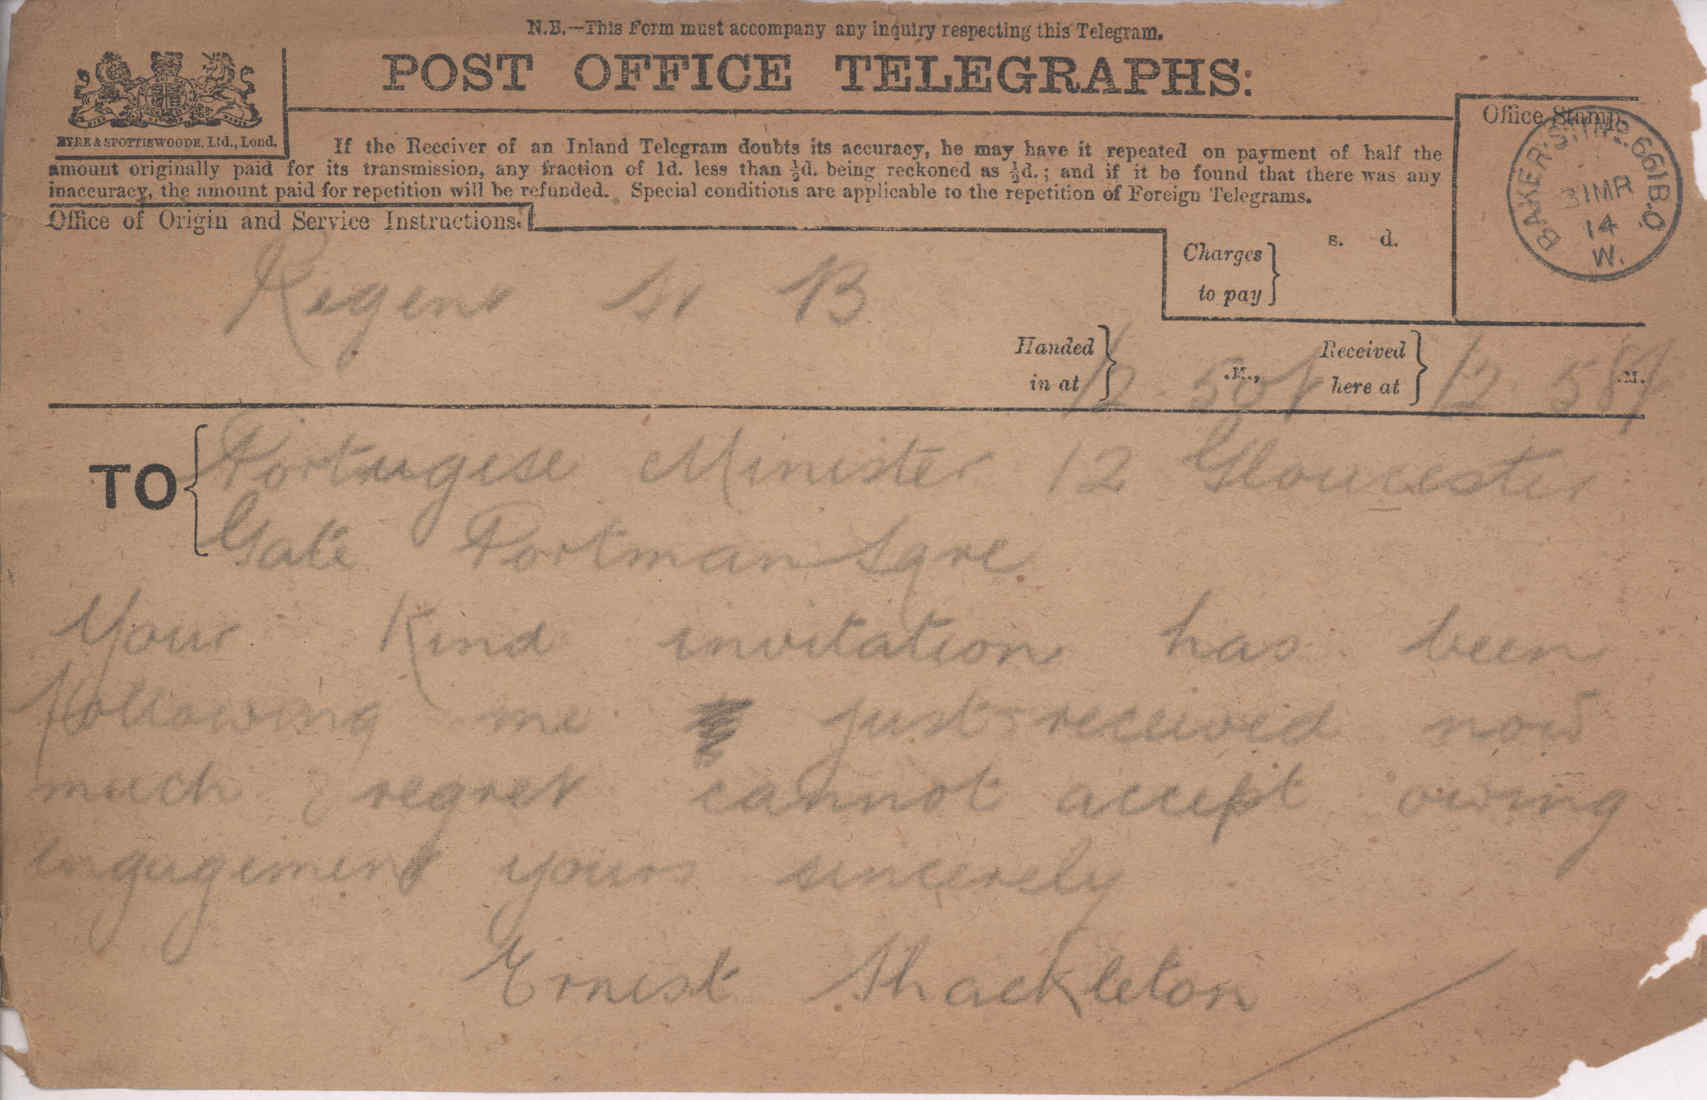 N.B.—This Form must accompany any inquiry respecting this Telegram.
POST OFFICE TELEGRAPHS:
EYRE & SPOTTISWOODE, Ltd., Lond.
If the Receiver of an Inland Telegram doubts its accuracy, he may have it repeated on payment of half the
amount originally paid for its transmission, any fraction of 1d. less than ½d. being reckoned as ½d.; and if it be found that there was any
inaccuracy, the amount paid for repetition will be refunded. Special conditions are applicable to the repetition of Foreign Telegrams.
Office Stamp.
BAKER. ST.
661 B.O.
31 MR
14
W.
Office of Origin and Service Instructions.
Charges to pay
s. d.
Regent St B
Handed in at 12.50 .M., Received here at 12 58 .M.
TO Portugese Minister 12 Gloucester
Gate Portman Sqre
Your Kind invitation has been
following me just received now
much regret cannot accept owing
engagement yours sincerely
Ernest Shackleton